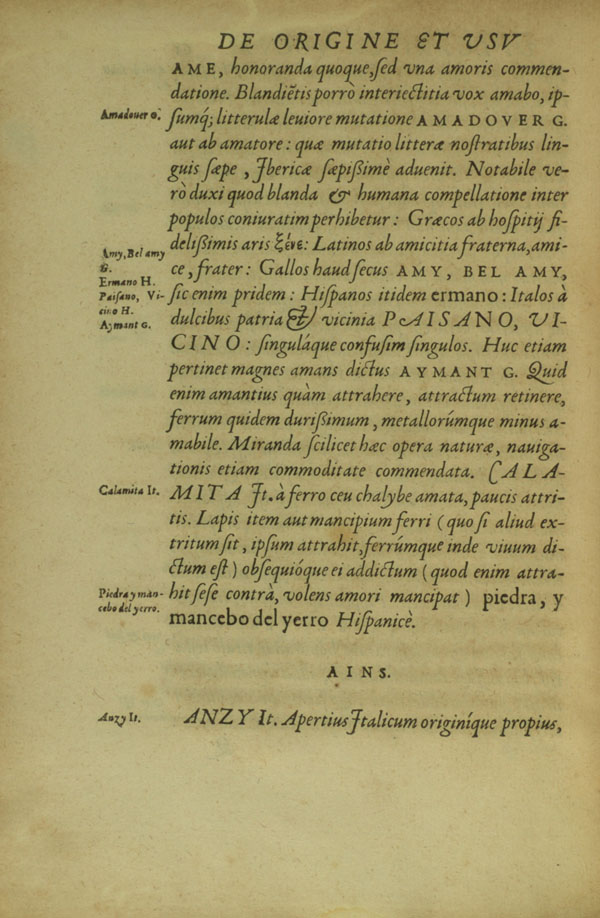 DE ORIGINE ET VSV
AME, honoranda quoque, sed vna amoris commen-
datione. Blandiẽtis porrò interiectitia vox amabo, ip-
Amadouer G.
sumq́; litterulæ leuiore mutatione AMADOVER G.
aut ab amatore: quæ mutatio litteræ nostratibus lin-
guis sæpe, Ibericæ sæpissimè aduenit. Notabile ve-
rò duxi quod blanda & humana compellatione inter
populos coniuratim perhibetur: Græcos ab hospitij fi-
delissimis aris ξένε: Latinos ab amicitia fraterna, ami-
Amy, Bel amy
G.
ce, frater: Gallos haud secus AMY, BEL AMY,
Ermano H.
Paisano, Vi-
sic enim pridem: Hispanos itidem ermano: Italos à
cino H.
Aymant G.
dulcibus patria & vicinia PAISANO, VI-
CINO: singuláque confusim singulos. Huc etiam
pertinet magnes amans dictus AYMANT G. Quid
enim amantius quàm attrahere, attractum retinere,
ferrum quidem durissimum, metallorúmque minus a-
mabile. Miranda scilicet hæc opera naturæ, nauiga-
tionis etiam commoditate commendata. CALA-
Calamita It.
MITA It. à ferro ceu chalybe amata, paucis attri-
tis. Lapis item aut mancipium ferri (quo si aliud ex-
tritum sit, ipsum attrahit, ferrúmque inde viuum di-
ctum est) obsequióque ei addictum (quod enim attra-
Piedra y man-
cebo del yerro.
hit sese contrà, volens amori mancipat) piedra, y
mancebo del yerro Hispanicè.
AINS.
Anzy It.
ANZY It. Apertius Italicum originíque propius,